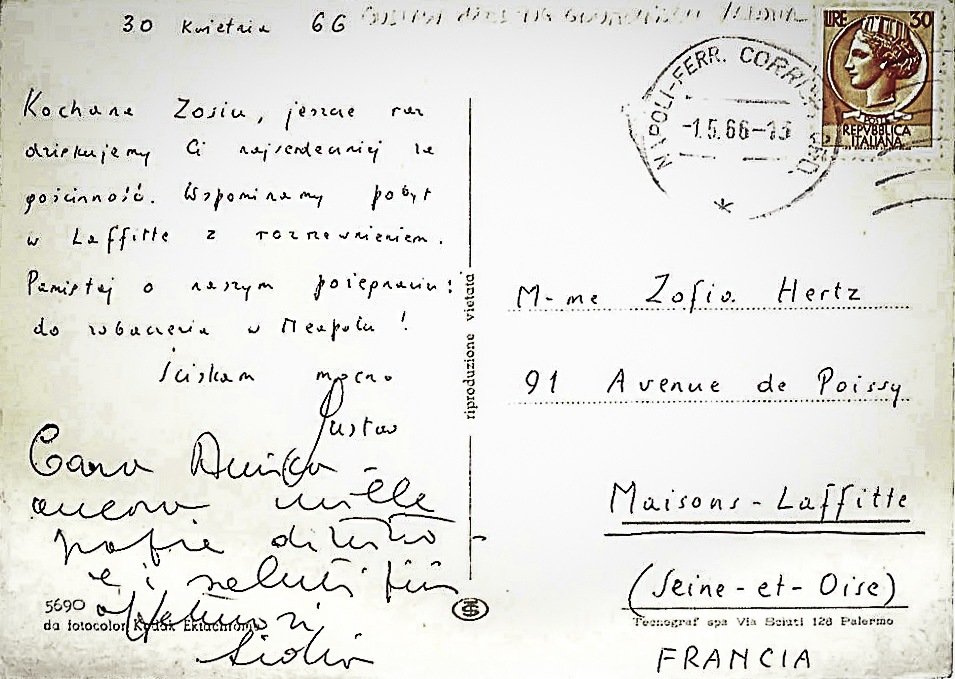 30 Kwietnia 66
LIRE 30
POSTE
REPVBBLICA
ITALIANA
NAPOLI-FERR. CORR
-1.5.66-13
Kochana Zosiu, jeszcze raz
dziękujemy Ci najserdeczniej za
gościnność. Wspominamy pobyt
w Laffitte z rozrzewnieniem.
Pamiętaj o naszym pożegnaniu:
do zobaczenia w Neapolu!
Ściskam mocno
Gustaw
Cara Amica
ancora mille
grazie di tutto -
e i saluti più
affettuosi
Lidia
riproduzione vietata
M-me Zofia Hertz
91 Avenue de Poissy
Maisons-Laffitte
(Seine-et-Oise)
FRANCIA
5690
da fotocolor Kodak Ektachrome
Tecnograf spa Via Sciuti 128 Palermo